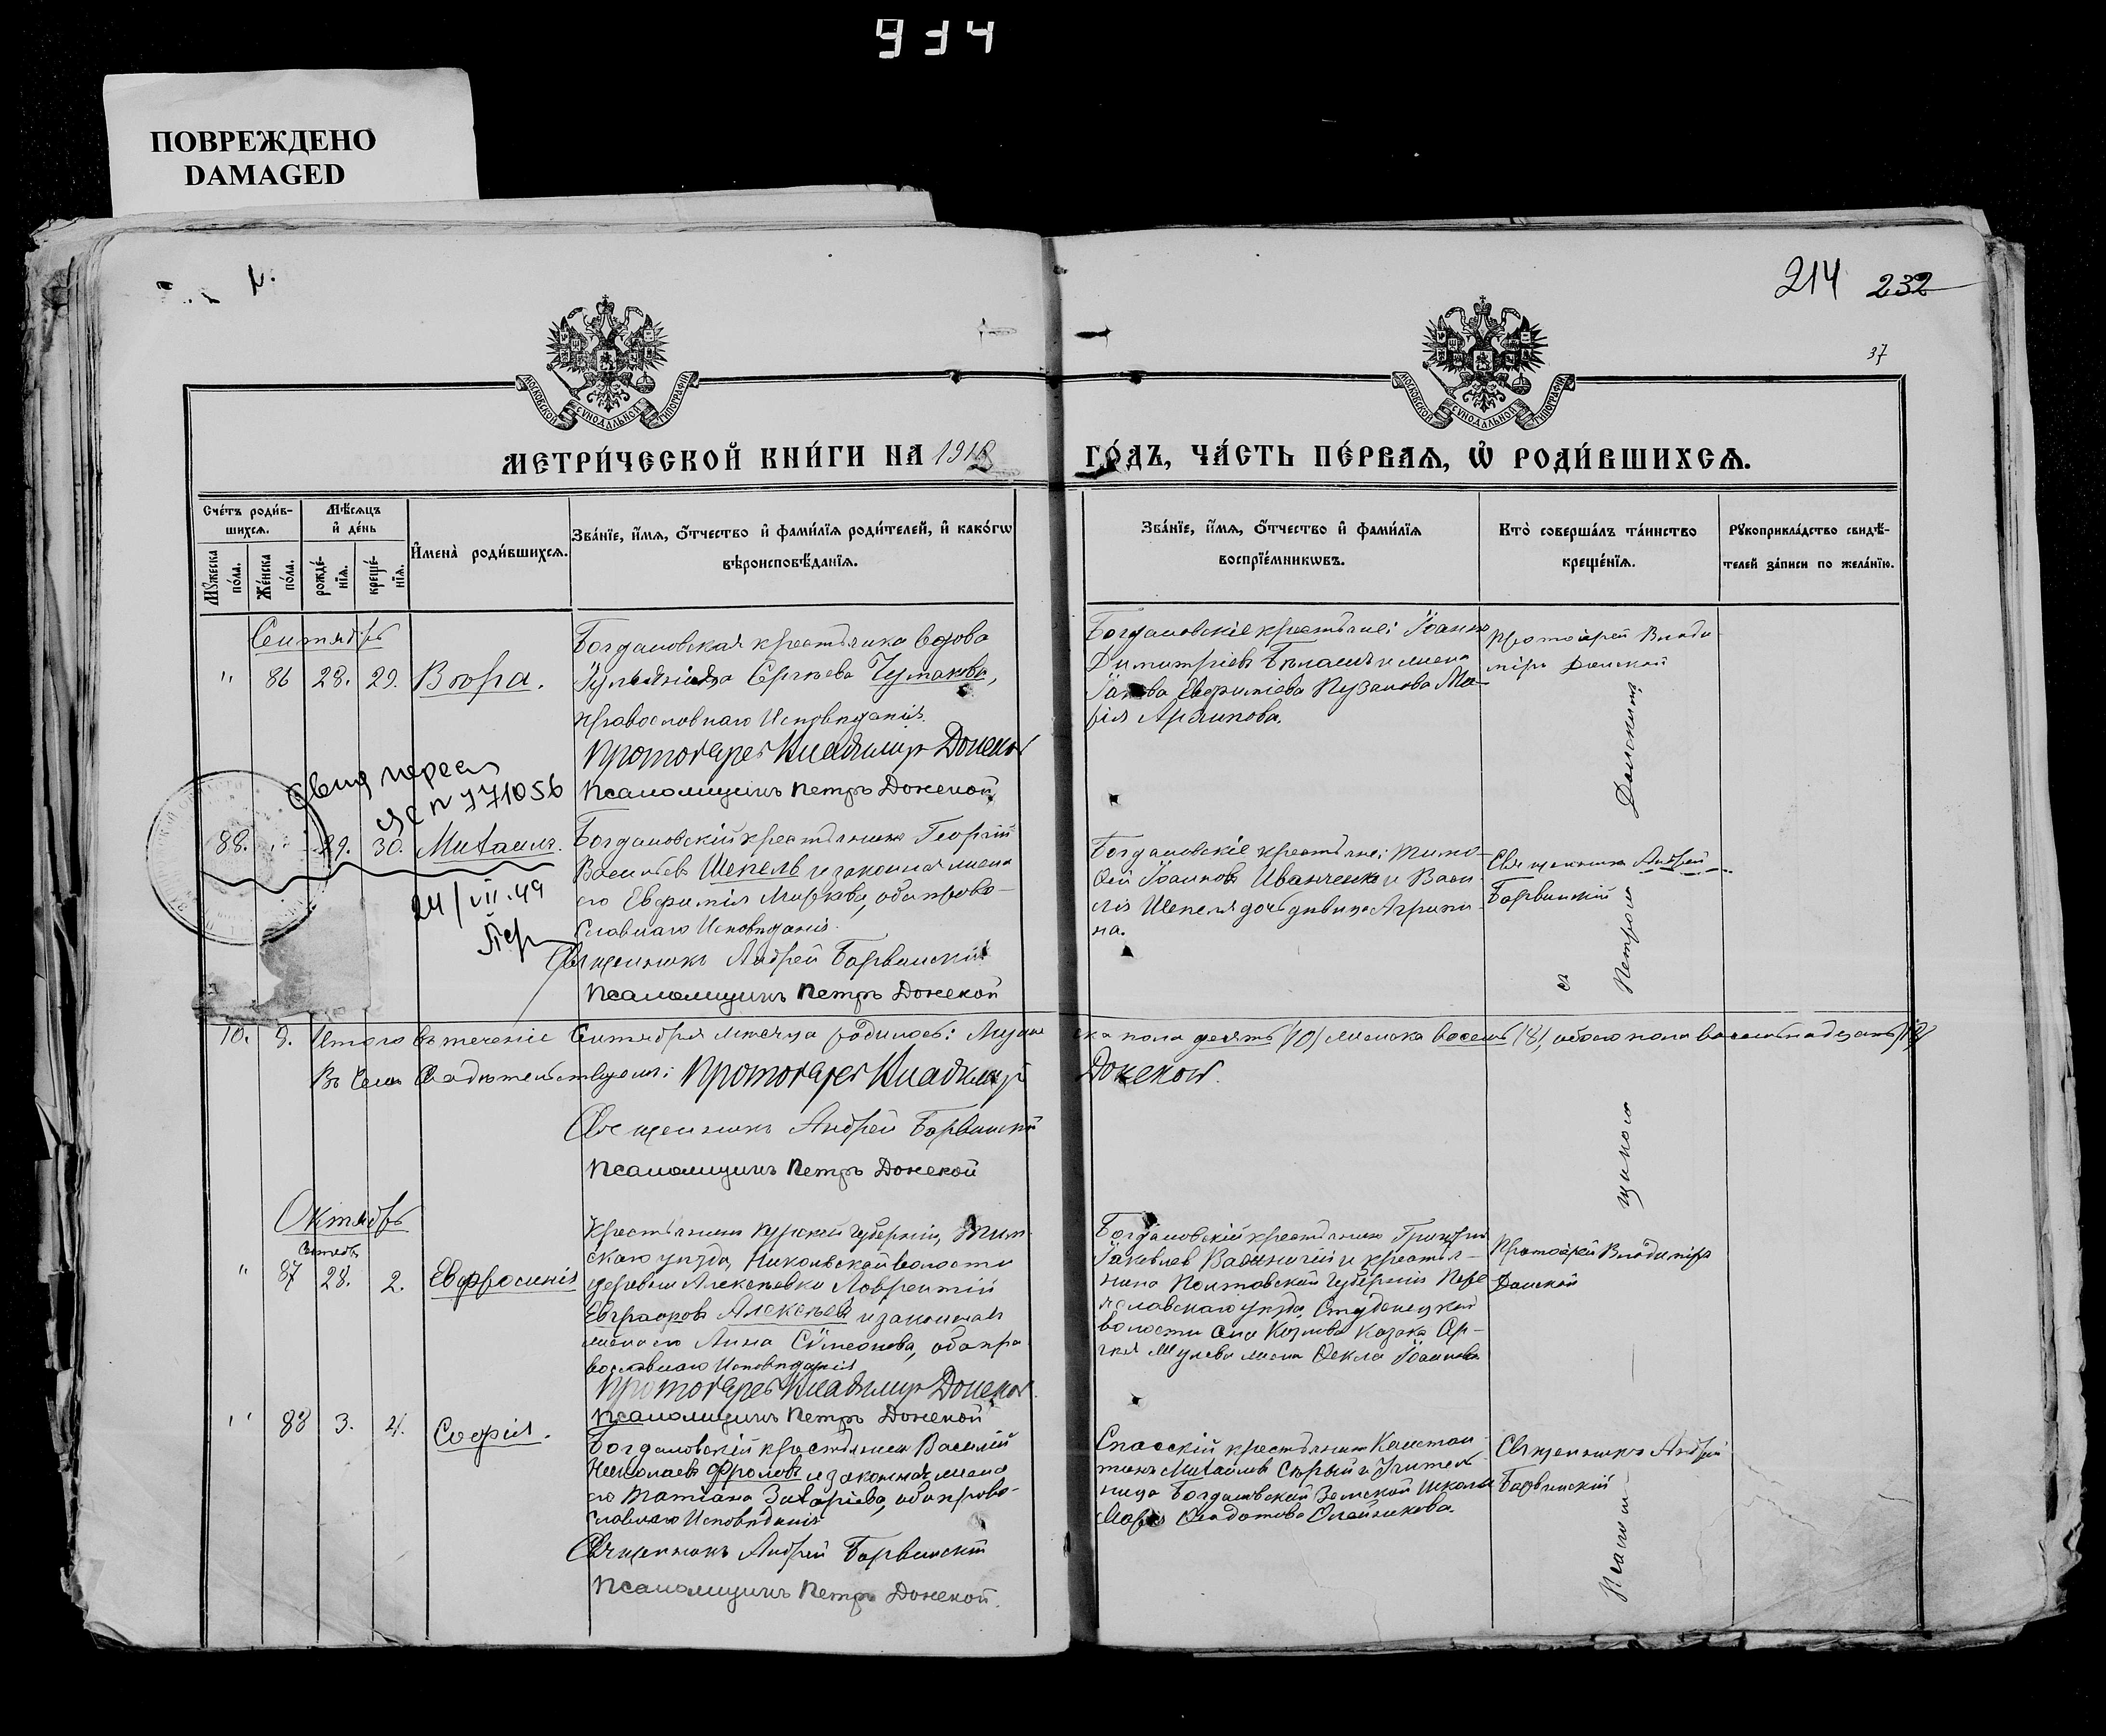 934
ПОВРЕЖДЕНО
DAMAGED
214 232
37
МОСКОВСКОЙ СѴНОДАЛЬНОЙ ТИПОГРАФІИ
МОСКОВСКОЙ СѴНОДАЛЬНОЙ ТИПОГРАФІИ
МЕТРИ́ЧЕСКОЙ КНИ́ГИ НА 1912 ГО́ДЪ, ЧА́СТЬ ПЕ́РВАѦ, Ѽ РОДИ́ВШИХСѦ.
Сче́тъ роди́в-
шихсѧ.
Мꙋ́жеска
по́ла.
Же́нска
по́ла.
Мѣ́сѧцъ
и҆ де́нь
рожде́-
нїѧ.
креще́-
нїѧ.
И҆мена̀ роди́вшихсѧ.
Зва́нїе, и҆́мѧ, ѻ҆́тчество и҆ фами́лїѧ роди́телей, и҆ како́гѡ
вѣроисповѣ́данїѧ.
Зва́нїе, и҆́мѧ, ѻ҆́тчество и҆ фами́лїѧ
воспрїе́мникѡвъ.
Кто̀ соверша́лъ та́инство
креще́нїѧ.
Рꙋкоприкла́дство свидѣ́-
телей за́писи по жела́нїю.
Сентябрь
" 86 28. 29. Вѣра.
Богдановская крестьянка вдова
Іуліанія Сергѣева Чумакова,
православнаго Исповѣданія.
Протоіерей Владиміръ Донской
Псаломщикъ Петръ Донской
Богдановскіе крестьяне: Іоаннъ
Димитріевъ Білашъ и жена
Іакова Евфиміева Пузанова Ма-
рія Архипова.
Протоіерей Влади
міръ Донской
771056
88. " 29. 30. Михаилъ.
24/VII.49
Богдановскій крестьянинъ Георгій
Васильевъ Шепель и законная жена
его Евфимія Маркова, оба право-
славнаго Исповѣданія.
Священникъ Андрей Борвинскій
Псаломщикъ Петръ Донской
Богдановскіе крестьяне: Тимо-
ѳей Іоанновъ Иванченко и Васи
лія Шепеля дочь дѣвица Агрипи
на.
Священникъ Андрей
Борвинскій
10. 8. Итого въ теченіе Сентября мѣсяца родилось: Муже ска пола десять (10) женска восемь (8), обоего пола восемнадцать (18)
Въ чемъ Свидѣтельствуемъ: Протоіерей Владиміръ Донской.
Священникъ Андрей Борвинскій
Псаломщикъ Петръ Донской
Октябрь
Сентябр.
" 87 28. 2. Евфросинія
Крестьянинъ Курской губерніи, Тим
скаго уѣзда, Никольской волости
деревни Алексѣевки Лаврентій
Евграфовъ Алексѣевъ и законная
жена его Анна Сѵмеонова, оба пра
вославнаго Исповѣданія
Протоіерей Владиміръ Донской.
Псаломщикъ Петръ Донской
Богдановскій крестьянинъ Григорій
Іаковлевъ и крестья-
нина Полтавской губерніи Пере
яславскаго уѣзда, Студенецкой
волости села Козлова Казака Сер-
гея жена Ѳекла Іоаннова
Протоіерей Владиміръ
Донской
" 88 3. 4. Софія.
Богдановскій крестьянинъ Василій
Николаевъ Фроловъ и законная жена
его Татіана Захаріева, оба право-
славнаго Исповѣданія
Священникъ Андрей Борвинскій
Псаломщикъ Петръ Донской.
Спасскій крестьянинъ Констан
тинъ Михаиловъ Сѣрый и Учитель
ница Богдановской Земской Школы
Марія Ѳеодотова Олейникова.
Священникъ Андрей
Борвинскій
Псалом
щикомъ
съ
Петромъ
Донскимъ